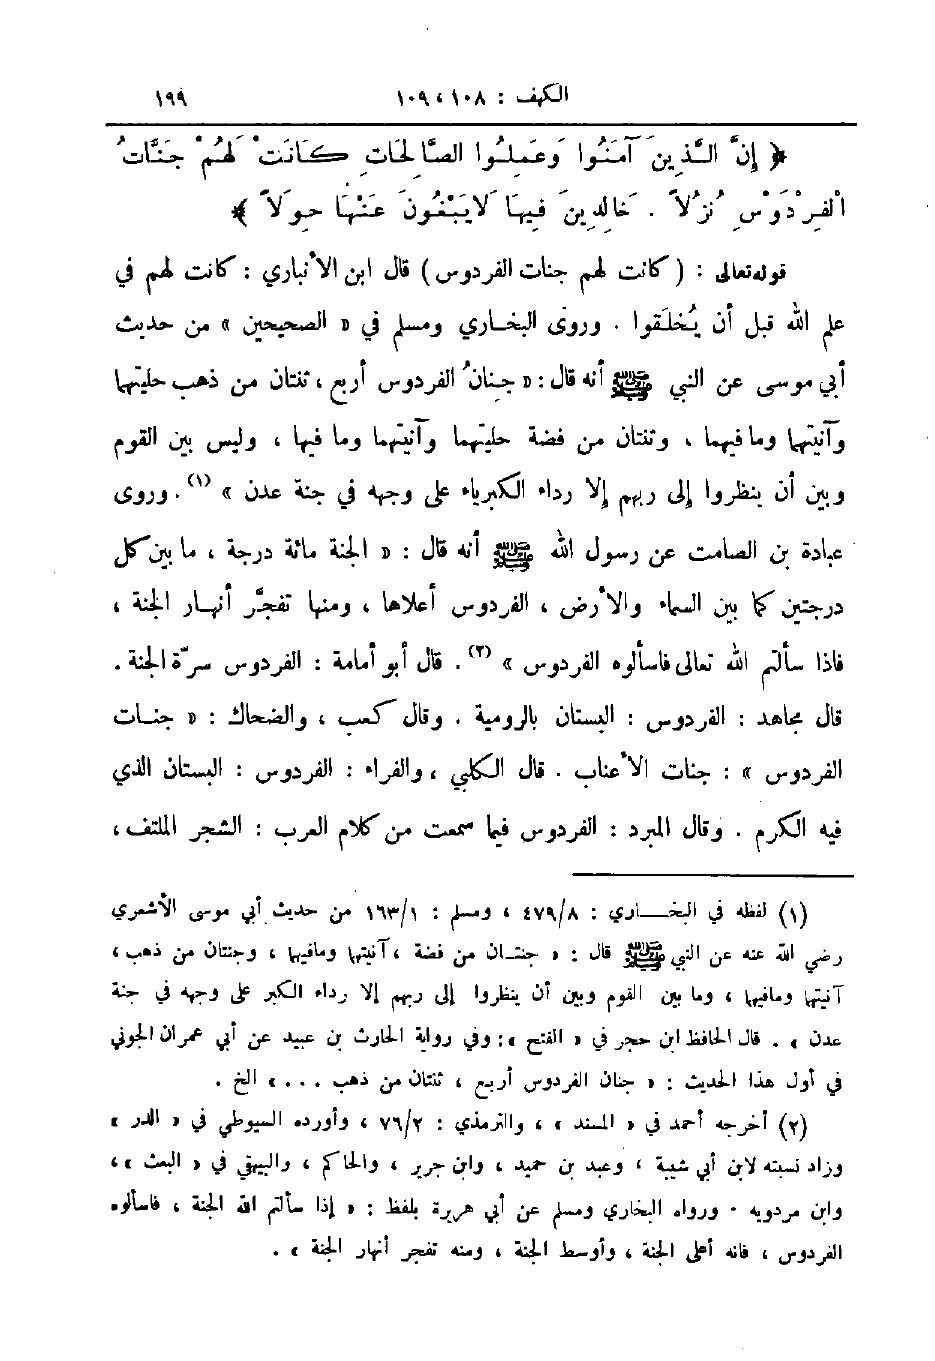 الكهف : ١٠٨ ، ١٠٩ ١٩٩
﴿ إِنَّ الَّذِينَ آمَنُوا وَعَمِلُوا الصَّالِحَاتِ كَانَتْ لَهُمْ جَنَّاتُ
الْفِرْدَوْسِ نُزُلاً . خَالِدِينَ فِيهَا لَايَبْغُونَ عَنْهَا حِوَلاً ﴾
قوله تعالى : ( كانت لهم جنات الفردوس ) قال ابن الأنباري : كانت لهم في
علم الله قبل أن يُخلَقوا . وروى البخاري ومسلم في « الصحيحين » من حديث
أبي موسى عن النبي ﷺ أنه قال : « جِنانُ الفردوس أربع ، ثنتان من ذهب حليتهما
وآنيتهما وما فيهما ، وثنتان من فضة حليتهما وآنيتهما وما فيهما ، وليس بين القوم
وبين أن ينظروا إلى ربهم إلا رداء الكبرياء على وجهه في جنة عدن » (١) . وروى
عبادة بن الصامت عن رسول الله ﷺ أنه قال : « الجنة مائة درجة ، ما بين كل
درجتين كما بين السماء والأرض ، الفردوس أعلاها ، ومنها تفجَّر أنهار الجنة ،
فاذا سألتم الله تعالى فاسألوه الفردوس » (٢) . قال أبو أمامة : الفردوس سرّة الجنة .
قال مجاهد : الفردوس : البستان بالرومية . وقال كعب ، والضحاك : « جنات
الفردوس » : جنات الأعناب . قال الكلبي ، والفراء : الفردوس : البستان الذي
فيه الكرم . وقال المبرد : الفردوس فيما سمعت من كلام العرب : الشجر الملتف ،
(١) لفظه في البخاري : ٤٧٩/٨ ، ومسلم : ١٦٣/١ من حديث أبي موسى الأشعري
رضي الله عنه عن النبي ﷺ قال : « جنتان من فضة ، آنيتهما ومافيهما ، وجنتان من ذهب ،
آنيتهما ومافيهما ، وما بين القوم وبين أن ينظروا إلى ربهم إلا رداء الكبر على وجهه في جنة
عدن » . قال الحافظ ابن حجر في « الفتح » : وفي رواية الحارث بن عبيد عن أبي عمران الجوني
في أول هذا الحديث : « جنان الفردوس أربع ، ثنتان من ذهب ... » الخ .
(٢) أخرجه أحمد في « المسند » ، والترمذي : ٧٦/٢ ، وأورده السيوطي في « الدر »
وزاد نسبته لابن أبي شيبة ، وعبد بن حميد ، وابن جرير ، والحاكم ، والبيهقي في « البعث » ،
وابن مردويه . ورواه البخاري ومسلم عن أبي هريرة بلفظ : « إذا سألتم الله الجنة ، فاسألوه
الفردوس ، فانه أعلى الجنة ، وأوسط الجنة ، ومنه تفجر أنهار الجنة » .